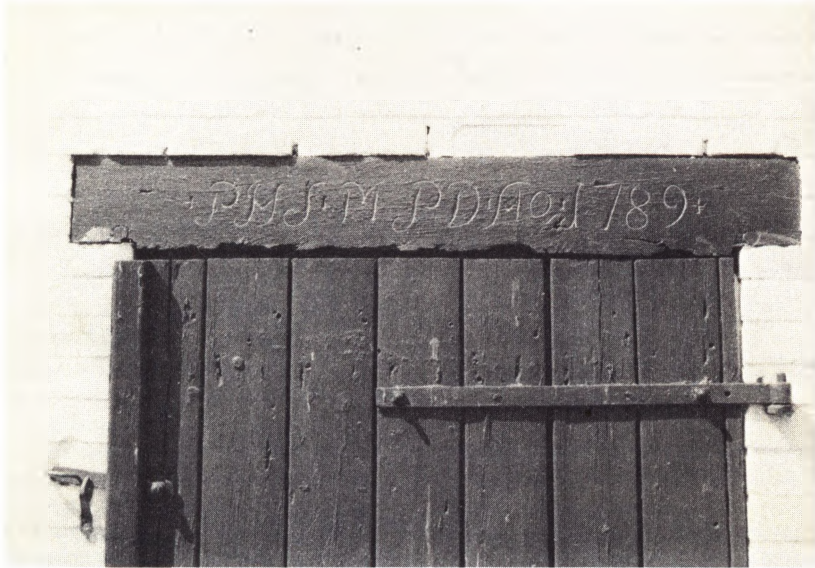 +PHI·M PD·Ao·1789+